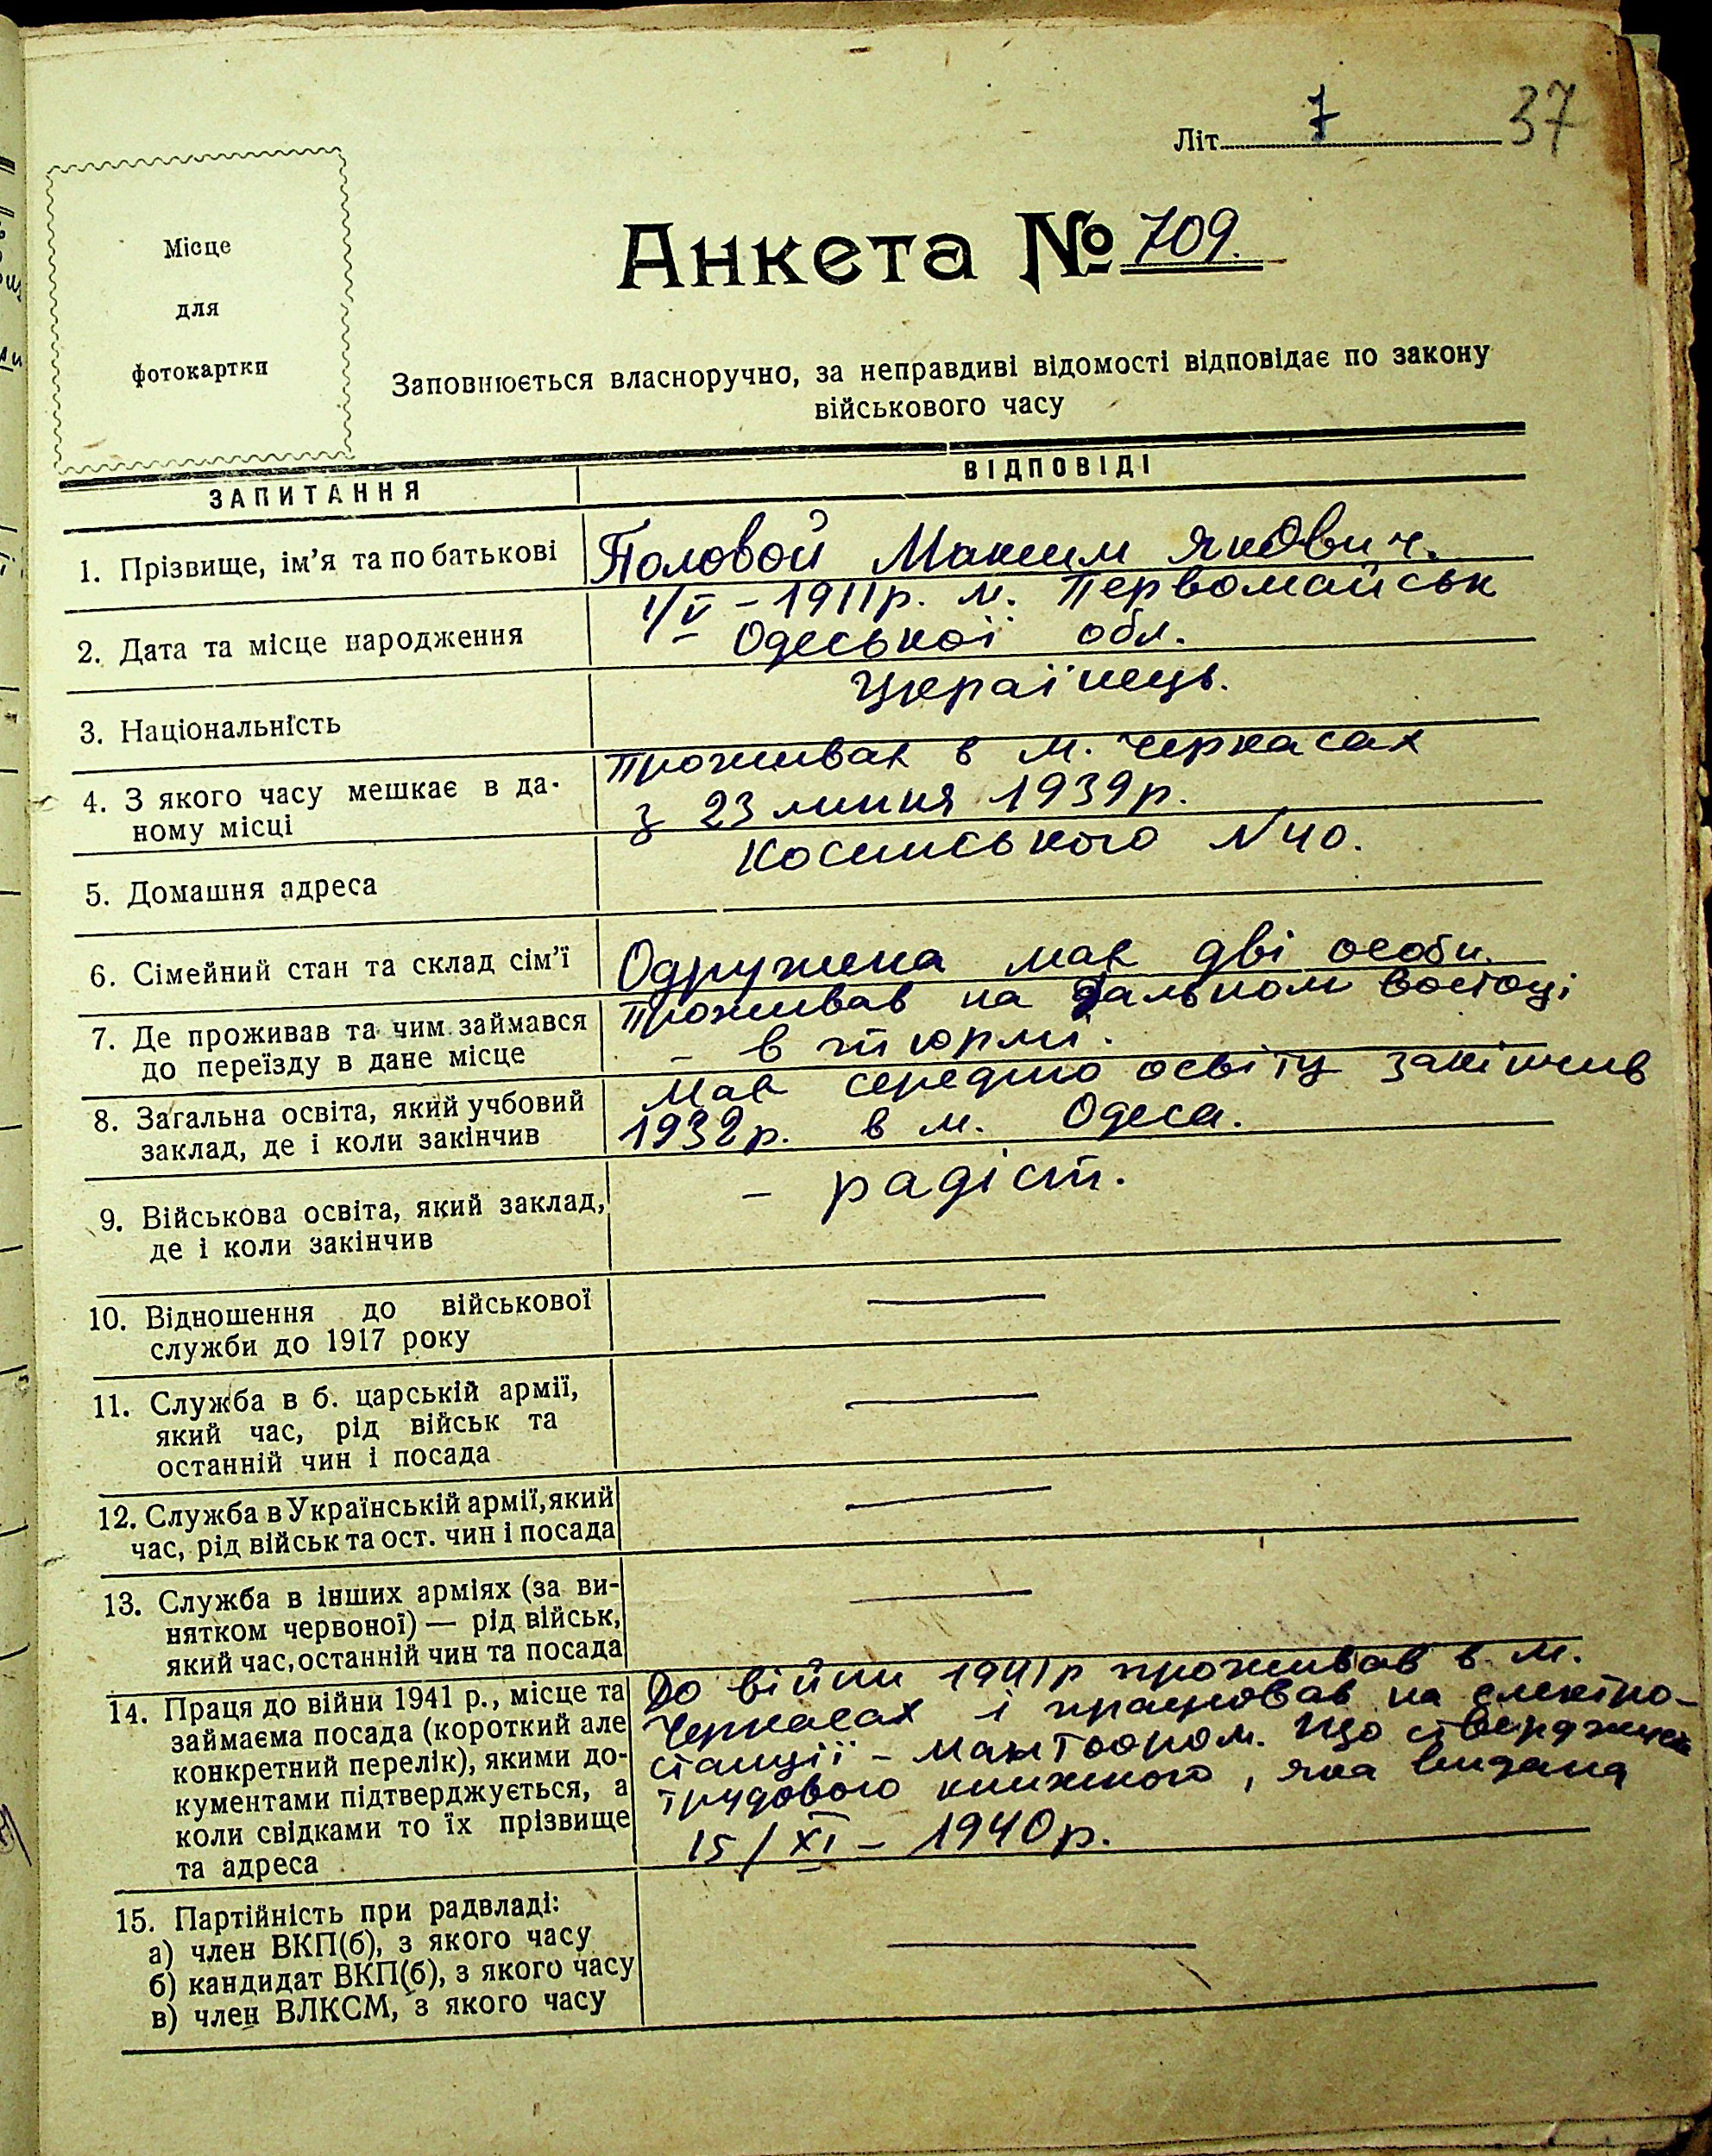 Літ. 7 37
Місце
для
фотокартки
Анкета № 709.
Заповнюється власноручно, за неправдиві відомості відповідає по закону
військового часу
ЗАПИТАННЯ ВІДПОВІДІ
1. Прізвище, ім'я та по батькові
Половой Максим Якович.
2. Дата та місце народження
1/V – 1911р. м. Первомайськ
– Одеської обл.
3. Національність
Українець.
4. З якого часу мешкає в да-
ному місці
Проживає в м. Черкасах
з 23 липня 1939р.
5. Домашня адреса
Косинського N 40.
6. Сімейний стан та склад сім'ї
Одружена має дві особи.
7. Де проживав та чим займався
до переїзду в дане місце
Проживав на Дальном востоці
– в тюрмі.
8. Загальна освіта, який учбовий
заклад, де і коли закінчив
Має середню освіту закінчив
1932р. в м. Одеса.
9. Військова освіта, який заклад,
де і коли закінчив
– радіст.
10. Відношення до військової
служби до 1917 року
—
11. Служба в б. царській армії,
який час, рід військ та
останній чин і посада
—
12. Служба в Українській армії, який
час, рід військ та ост. чин і посада
—
13. Служба в інших арміях (за ви-
нятком червоної) — рід військ,
який час, останній чин та посада
—
14. Праця до війни 1941 р., місце та
займаєма посада (короткий але
конкретний перелік), якими до-
кументами підтверджується, а
коли свідками то їх прізвище
та адреса
До війни 1941р проживав в м.
Черкасах і працював на електро-
станції – монтьором. Що стверджуєт
трудового книжкою, яка видана
15/XI – 1940р.
15. Партійність при радвладі:
а) член ВКП(б), з якого часу
б) кандидат ВКП(б), з якого часу
в) член ВЛКСМ, з якого часу
—